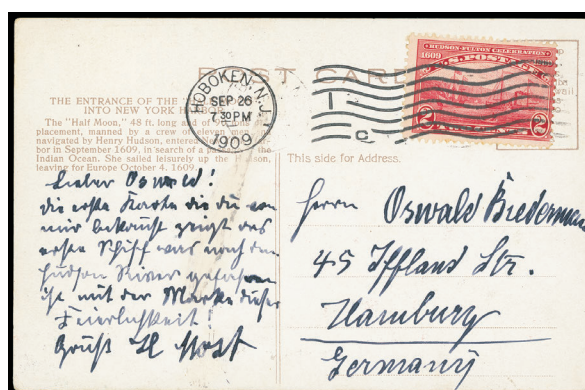 POST CARD
THE ENTRANCE OF THE
INTO NEW YORK HARBOR
The "Half Moon," 48 ft. long and of
placement, manned by a crew of eleven men
navigated by Henry Hudson, entered
bor in September 1609, in search of a the
Indian Ocean. She sailed leisurely up the Hudson,
leaving for Europe October 4, 1609.
HOBOKEN, N.J.
SEP 26
7 30 PM
1909
HUDSON-FULTON CELEBRATION
1609 1909
U.S. POSTAGE
2 2
This side for Address.
Lieber Oswald!
die erste Karte die du von
mir bekommst zeigt das
erste Schiff was nach dem
Hudson River gefahren
ist mit der Marke dieser
Feierlichkeit!
Gruß H
Herrn Oswald Biedermann
45 Iffland Str.
Hamburg
Germany